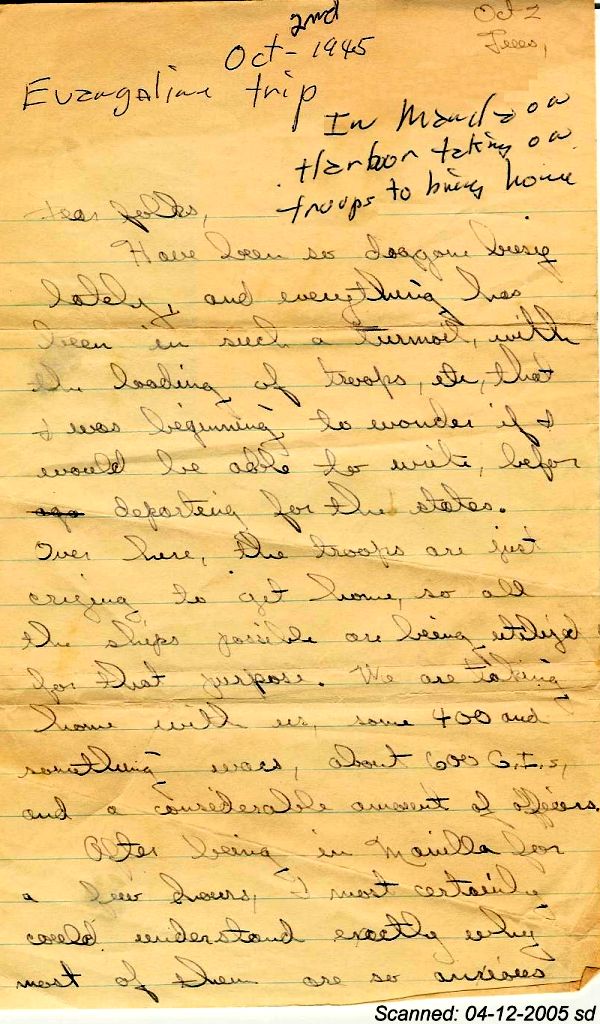 Oct 2
Tues,
2nd
Oct - 1945
Evangaline trip
In Manila on
Harbor taking on
troops to bring home
Dear folks,
Have been so doggone busy
lately, and everything has
been in such a turmoil, with
the loading of troops, etc, that
I was beginning to wonder if I
would be able to write, befor
departing for the states.
Over here, the troops are just
crying to get home, so all
the ships possible are being utilized
for that purpose. We are taking
home with us, some 400 and
something wacs, about 600 G.I.s,
and a considerable amount of officers.
After being in Manilla for
a few hours, I most certainly
could understand exactly why
most of them are so anxious
Scanned: 04-12-2005 sd